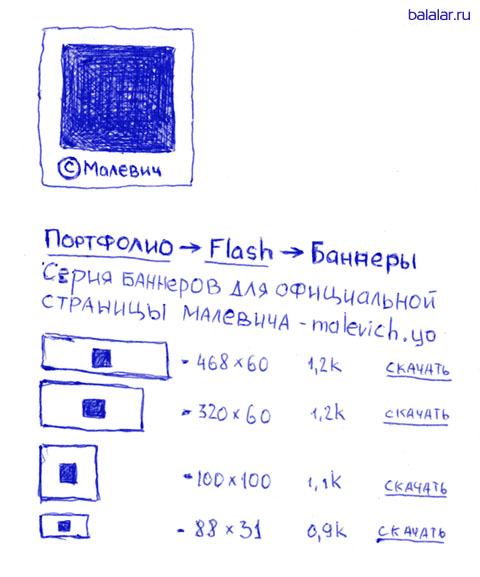 balalar.ru
© Малевич
Портфолио → Flash → Баннеры
Серия баннеров для официальной
страницы Малевича - malevich.yo
- 468 × 60 1,2k скачать
- 320 × 60 1,2k скачать
- 100 × 100 1,1k скачать
- 88 × 31 0,9k скачать